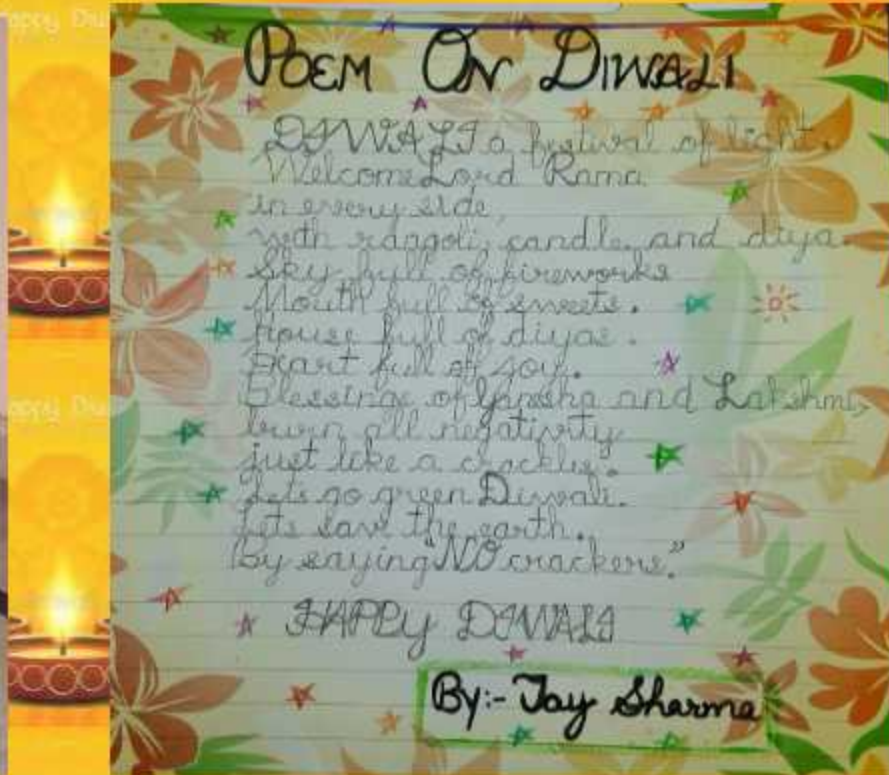 Happy Diw
POEM ON DIWALI
DIWALI a festival of light.
Welcome Lord Rama
in every side,
with rangoli, candle, and diya.
Sky full of fireworks
Mouth full of sweets.
house full of diyas.
Heart full of joy.
Blessings of Ganesha and Lakshmi,
burn all negativity
just like a crackles.
Lets go green Diwali.
Lets save the earth.
By saying "NO crackers."
HAPPY DIWALI
By:- Jay Sharma
Happy Diw